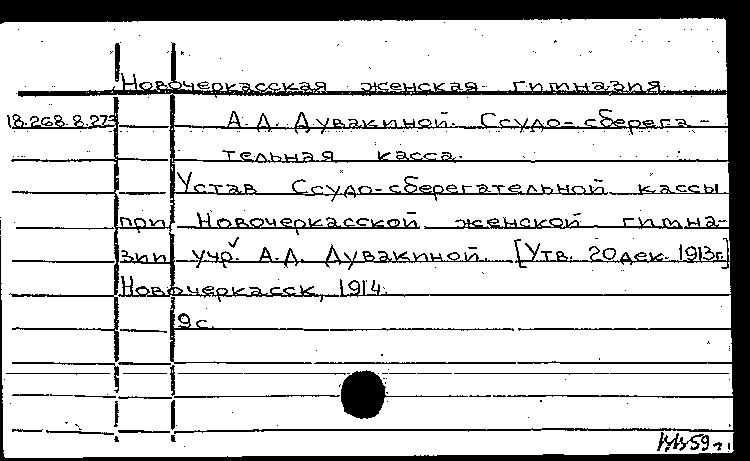 Новочеркасская женская гимназия
18.268.8.273 А.Д. Дувакиной. Ссудо-сберега-
тельная касса.
Устав Ссудо-сберегательной кассы
при Новочеркасской женской гимна-
зии учр. А.Д. Дувакиной. [Утв. 20 дек. 1913г.]
Новочеркасск, 1914.
9 с.